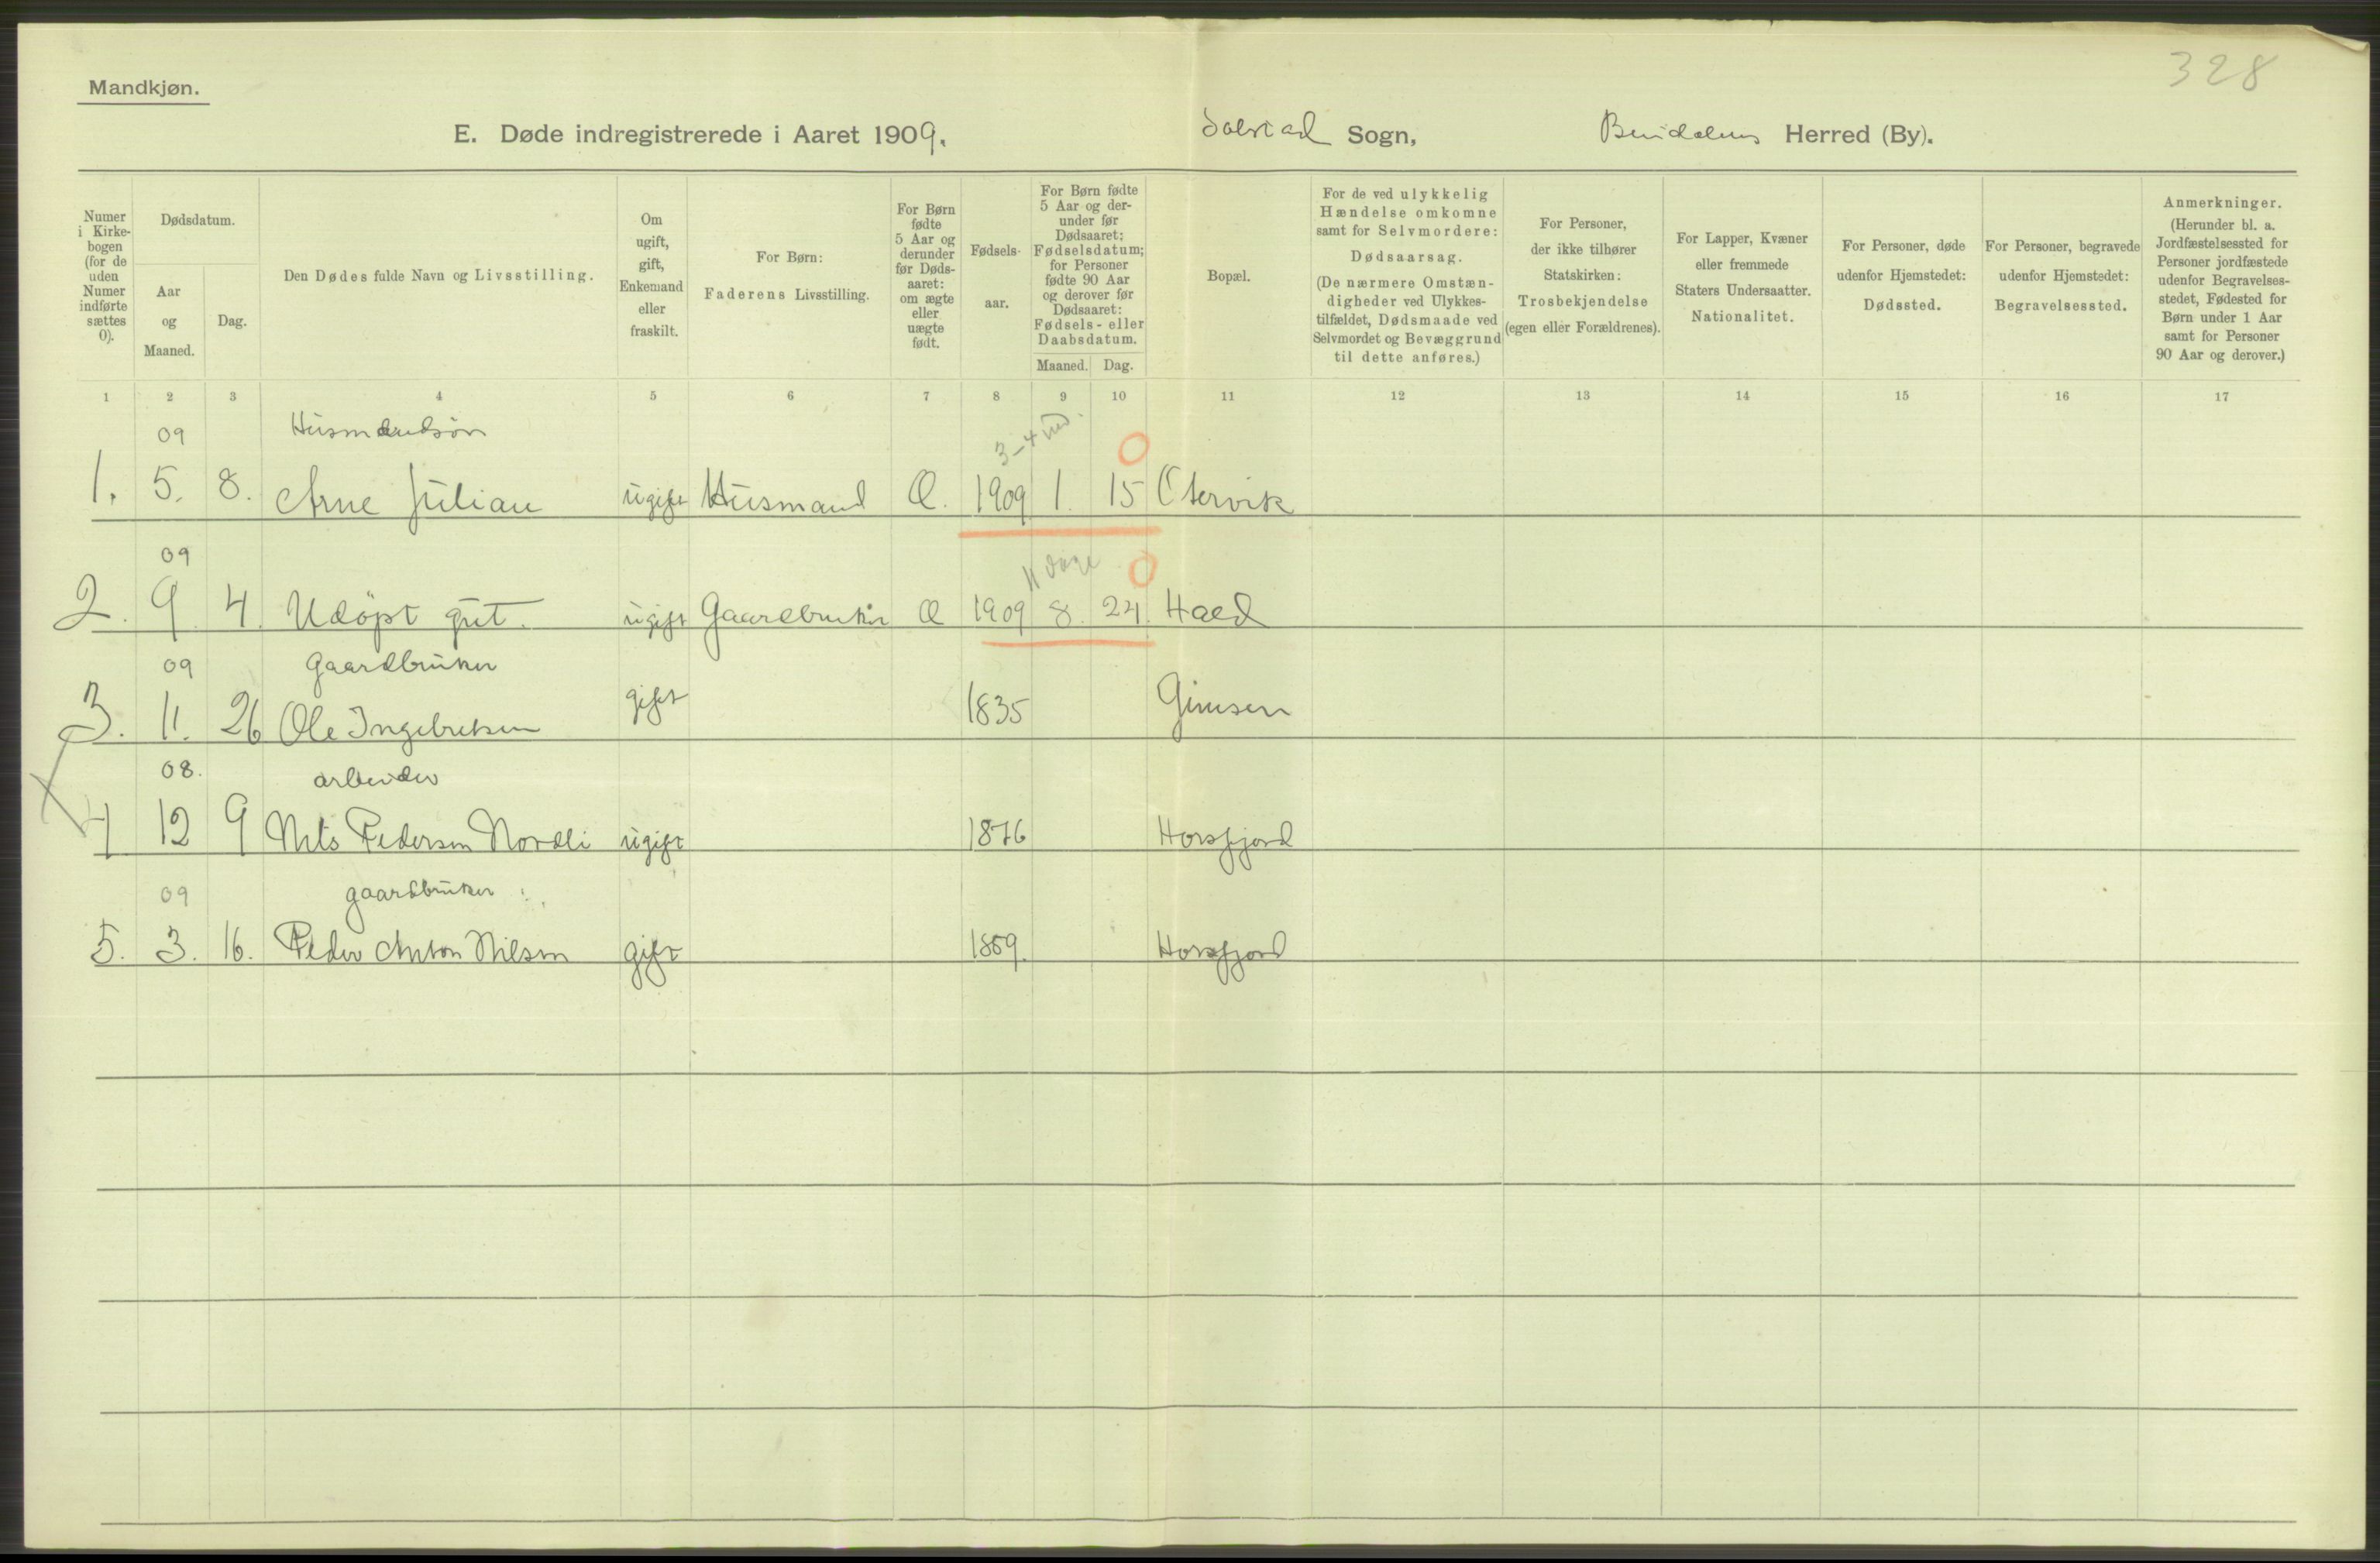 328
Mandkjøn.
E. Døde indregistrerede i Aaret 1909. Solstad Sogn, Bindalens Herred (By).
Numer i Kirke-bogen (for de uden Numer indførte sættes 0).
Dødsdatum.
Aar og Maaned.
Dag.
Den Dødes fulde Navn og Livsstilling.
Om ugift, gift, Enkemand eller fraskilt.
For Børn: Faderens Livsstilling.
For Børn fødte 5 Aar og derunder før Døds-aaret: om ægte eller uægte født.
Fødsels-aar.
For Børn fødte 5 Aar og der-under før Dødsaaret: Fødselsdatum; for Personer fødte 90 Aar og derover før Dødsaaret: Fødsels- eller Daabsdatum.
Maaned. Dag.
Bopæl.
For de ved ulykkelig Hændelse omkomne samt for Selvmordere: Dødsaarsag. (De nærmere Omstæn-digheder ved Ulykkes-tilfældet, Dødsmaade ved Selvmordet og Bevæggrund til dette anføres.)
For Personer, der ikke tilhører Statskirken: Trosbekjendelse (egen eller Forældrenes).
For Lapper, Kvæner eller fremmede Staters Undersaatter. Nationalitet.
For Personer, døde udenfor Hjemstedet: Dødssted.
For Personer, begravede udenfor Hjemstedet: Begravelsessted.
Anmerkninger. (Herunder bl. a. Jordfæstelsessted for Personer jordfæstede udenfor Begravelses-stedet, Fødested for Børn under 1 Aar samt for Personer 90 Aar og derover.)
1 2 3 4 5 6 7 8 9 10 11 12 13 14 15 16 17
09 Husmandsøn 3-4 md. 0
1. 5. 8. Arne Julian ugift Husmand Æ. 1909 1. 15 Otervik
09 11 dage 0
2. 9. 4. Udöpt gut. ugift Gaardbruker Æ 1909 8. 24. Hald
09 Gaardbruker
3. 11. 26 Ole Ingebretsen gift 1835 Gimsen
08. arbeider
4 12 9 Nils Pedersen Nordli ugift 1876 Horsfjord
09 gaardbruker
5. 3. 16. Peder Anton Nilsen gift 1859. Horsfjord